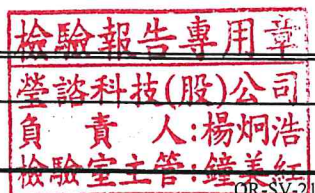 檢驗報告專用章
瑩諮科技(股)公司
負責人:楊炯浩
檢驗室主管:鐘美紅
QR-SV-2